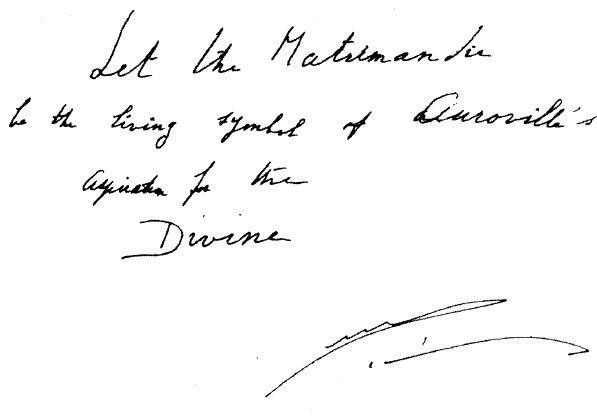 Let the Matrimandir
be the living symbol of Auroville's
aspiration for the
Divine